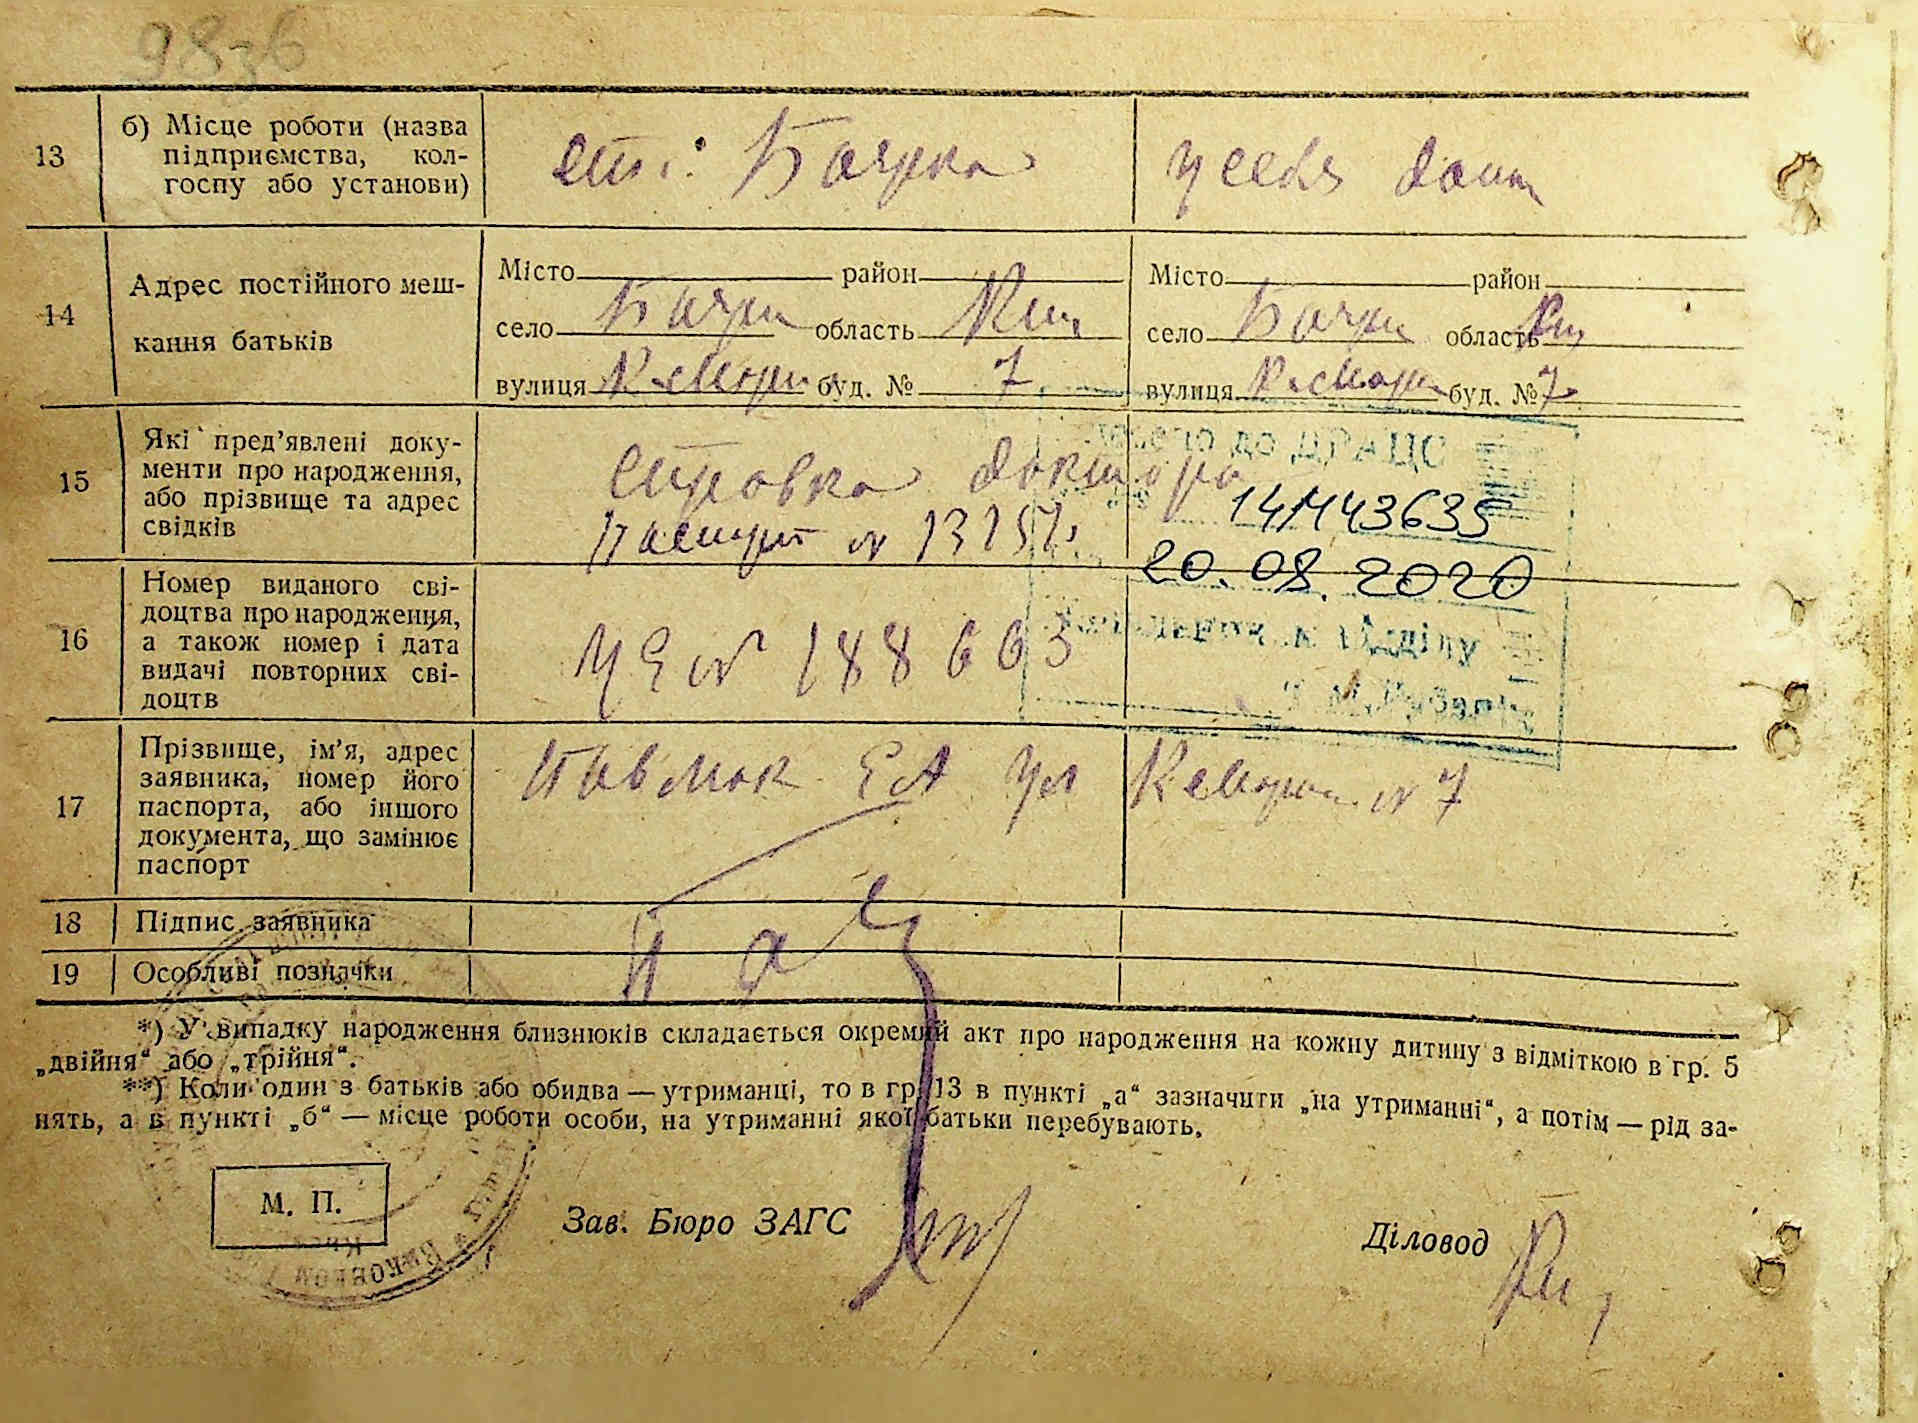 9836
13
б) Місце роботи (назва
підприємства, кол-
госпу або установи)
ст. Боярка
у себя дома
14
Адрес постійного меш-
кання батьків
Місто район
село Боярк область Ки
вулиця буд. № 7
Місто район
село Боярк область Ки
вулиця буд. № 7
15
Які пред’явлені доку-
менти про народження,
або прізвище та адрес
свідків
справка доктора
Паспорт №
до ДРАЦС
14143635
20.08.2020
відділу
16
Номер виданого сві-
доцтва про народження,
а також номер і дата
видачі повторних сві-
доцтв
№ 188663
17
Прізвище, ім’я, адрес
заявника, номер його
паспорта, або іншого
документа, що замінює
паспорт
Павлюк ЕА ул № 7
18
Підпис заявника
19
Особливі позначки
*) У випадку народження близнюків складається окремий акт про народження на кожну дитину з відміткою в гр. 5
„двійня“ або „трійня“.
**) Коли один з батьків або обидва — утриманці, то в гр. 13 в пункті „а“ зазначити „на утриманні“, а потім — рід за-
нять, а в пункті „б“ — місце роботи особи, на утриманні якої батьки перебувають.
М. П.
Зав. Бюро ЗАГС
Діловод